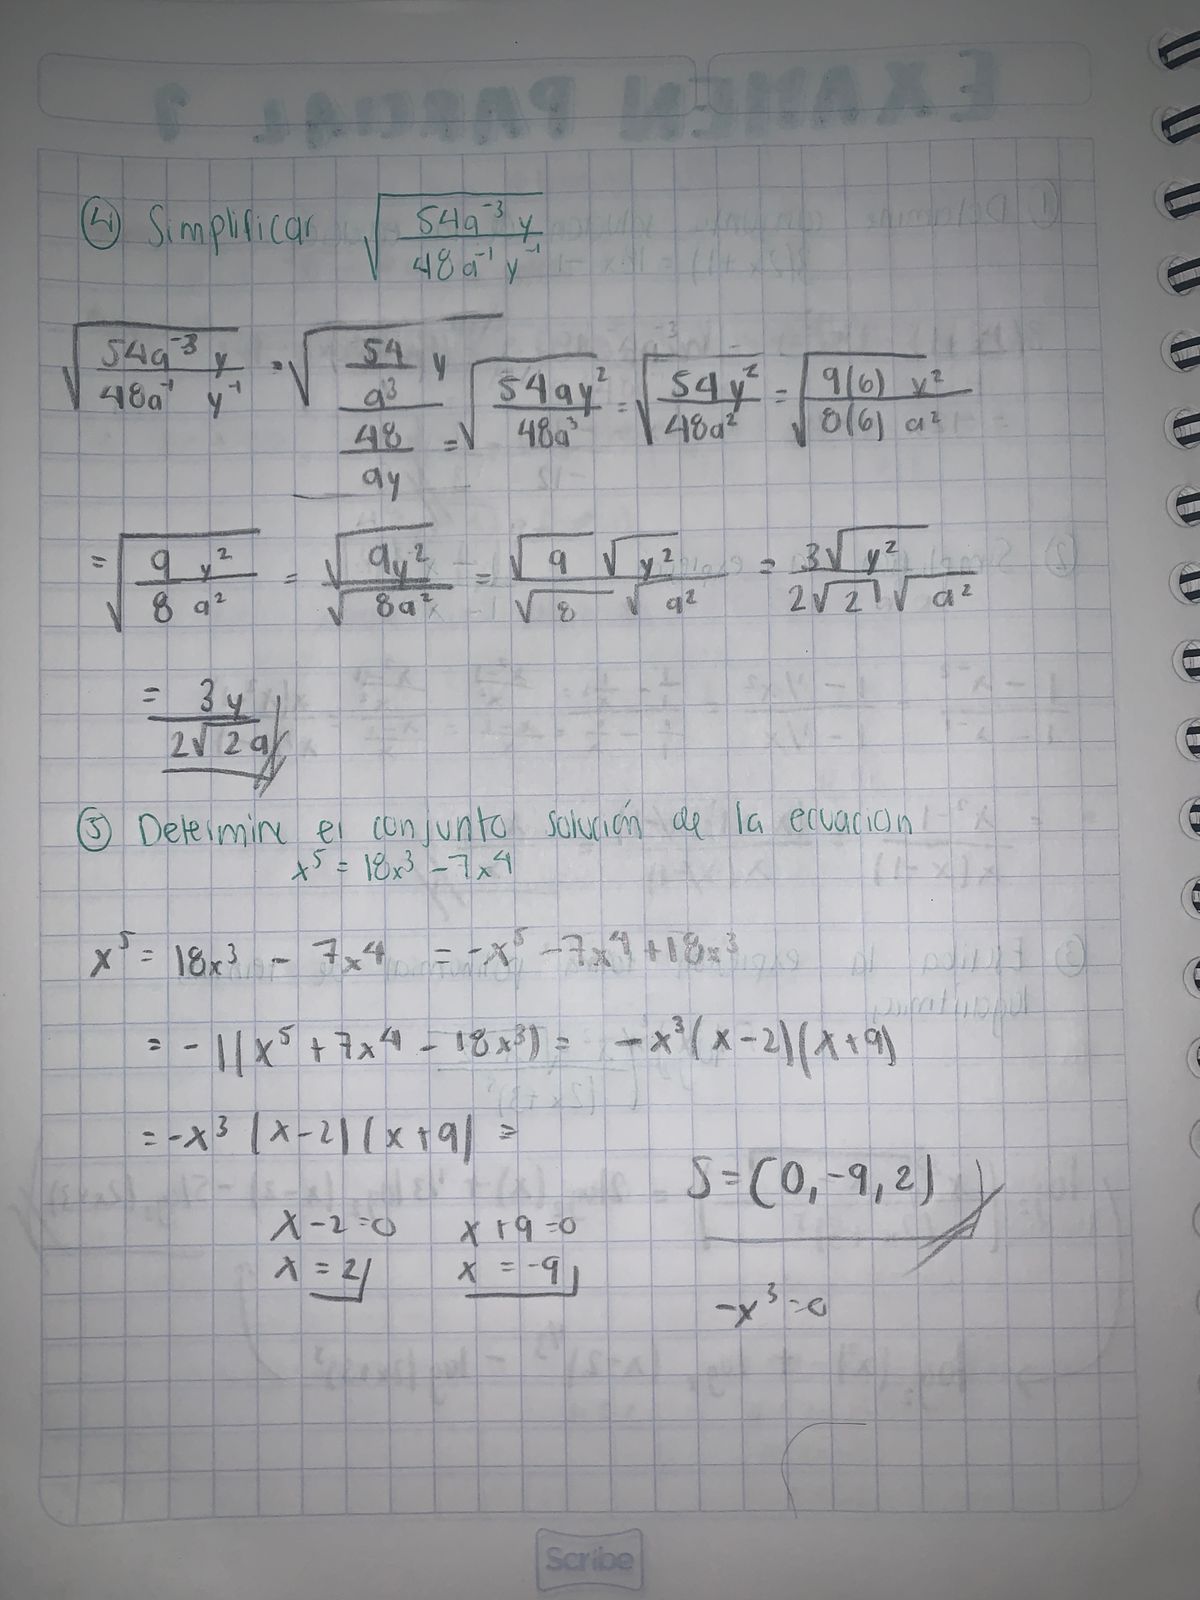 ④ Simplificar √(54a⁻³ y / 48a⁻¹ y⁻¹)
√(54a⁻³ y / 48a⁻¹ y⁻¹) = √((54/a³) y / (48/ay)) = √(54ay² / 48a³) = √(54y² / 48a²) = √(9(6) y² / 8(6) a²)
= √(9 y² / 8 a²) = √(9y²) / √(8a²) = √9 √y² / √8 √a² = 3√y² / 2√2 √a²
= 3y / 2√2a
⑤ Determine el conjunto solución de la ecuacion
x⁵ = 18x³ - 7x⁴
x⁵ = 18x³ - 7x⁴ = -x⁵ - 7x⁴ + 18x³
= -1(x⁵ + 7x⁴ - 18x³) = -x³(x-2)(x+9)
= -x³ (x-2)(x+9) =
S = (0, -9, 2)
x-2=0 x+9=0
x = 2 x = -9
-x³=0
Scribe